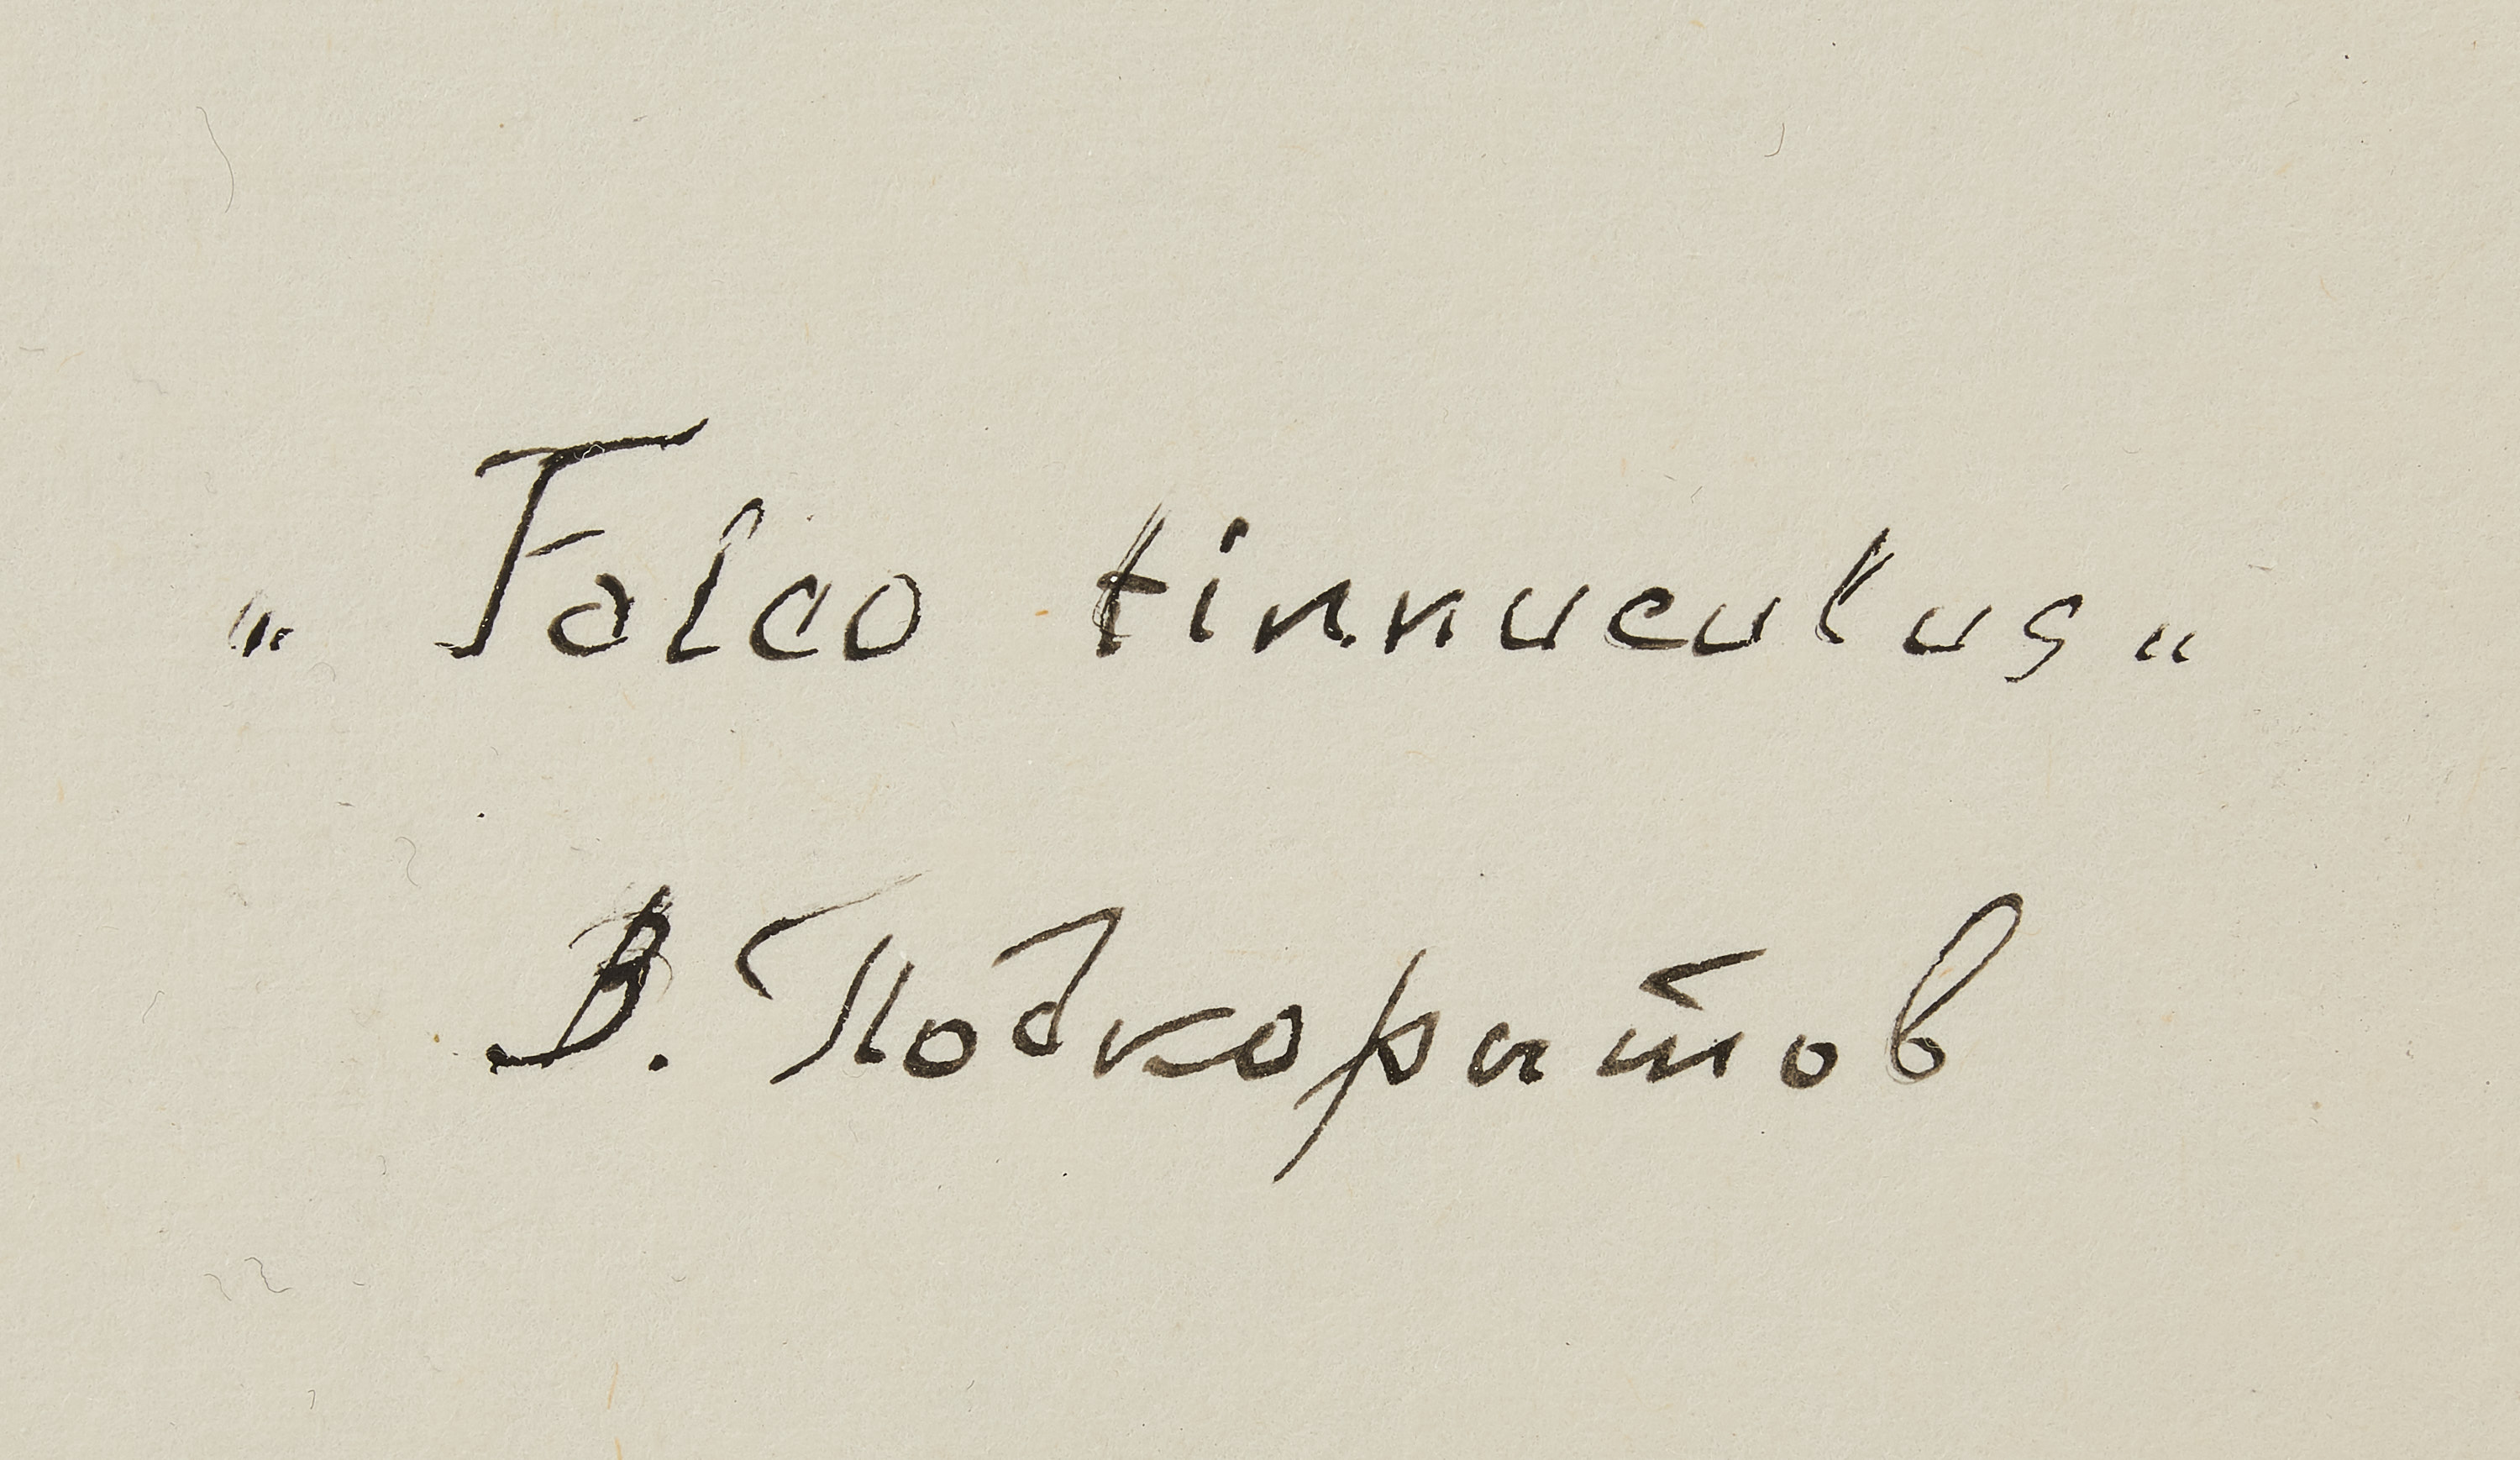 „ Falco tinnuculus „
В. Подкорытов